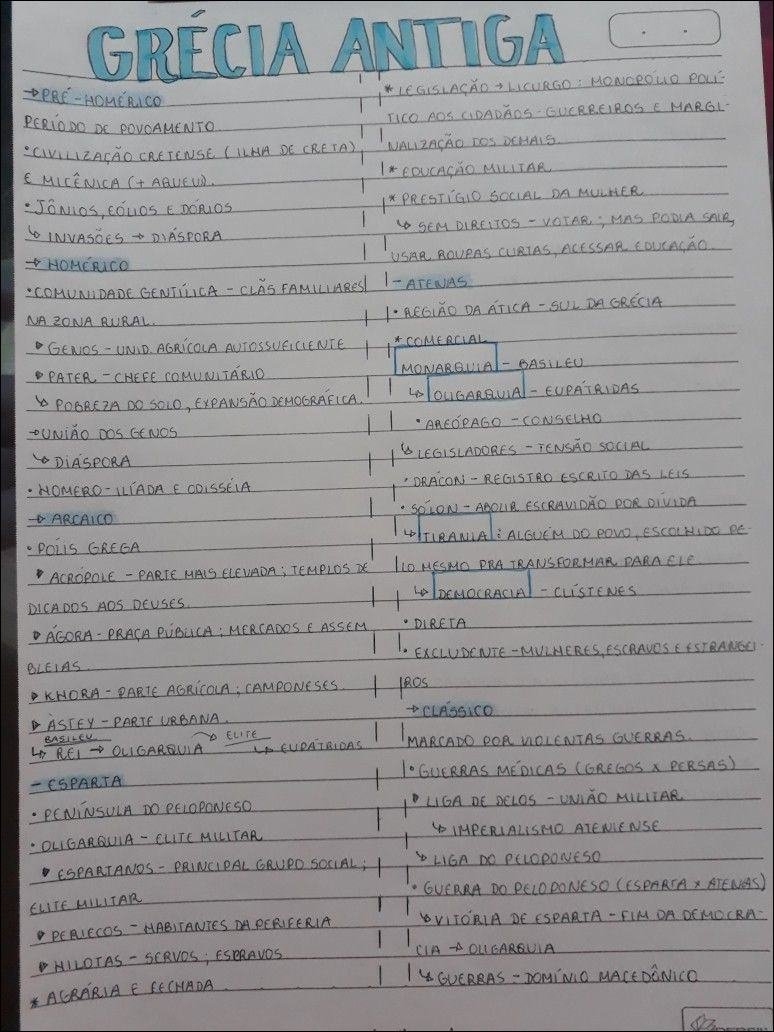 GRÉCIA ANTIGA
→ PRÉ-HOMÉRICO
PERÍODO DE POVOAMENTO
• CIVILIZAÇÃO CRETENSE (ILHA DE CRETA)
E MICÊNICA (+ AQUEU).
• JÔNIOS, EÓLIOS E DÓRIOS
↳ INVASÕES → DIÁSPORA
→ HOMÉRICO
• COMUNIDADE GENTÍLICA - CLÃS FAMILIARES
NA ZONA RURAL.
▸ GENOS - UNID. AGRÍCOLA AUTOSSUFICIENTE
▸ PATER - CHEFE COMUNITÁRIO
↳ POBREZA DO SOLO, EXPANSÃO DEMOGRÁFICA.
→ UNIÃO DOS GENOS
↳ DIÁSPORA
• HOMERO - ILÍADA E ODISSÉIA
→ ARCAICO
• PÓLIS GREGA
▸ ACRÓPOLE - PARTE MAIS ELEVADA; TEMPLOS DE
DICADOS AOS DEUSES.
▸ ÁGORA - PRAÇA PÚBLICA; MERCADOS E ASSEM
BLEIAS.
▸ KHORA - PARTE AGRÍCOLA; CAMPONESES.
▸ ÁSTEY - PARTE URBANA.
BASILEU
↳ REI → OLIGARQUIA → ELITE
↳ EUPÁTRIDAS
- ESPARTA
• PENÍNSULA DO PELOPONESO
• OLIGARQUIA - ELITE MILITAR
▸ ESPARTANOS - PRINCIPAL GRUPO SOCIAL;
ELITE MILITAR
▸ PERIECOS - HABITANTES DA PERIFERIA
▸ HILOTAS - SERVOS; ESCRAVOS
* AGRÁRIA E FECHADA
* LEGISLAÇÃO → LICURGO: MONOPÓLIO POLÍ-
TICO AOS CIDADÃOS-GUERREIROS E MARGI-
NALIZAÇÃO DOS DEMAIS
* EDUCAÇÃO MILITAR
* PRESTÍGIO SOCIAL DA MULHER
↳ SEM DIREITOS - VOTAR; MAS PODIA SAIR,
USAR ROUPAS CURTAS, ACESSAR EDUCAÇÃO.
- ATENAS
• REGIÃO DA ÁTICA - SUL DA GRÉCIA
* COMERCIAL
MONARQUIA - BASILEU
↳ OLIGARQUIA - EUPÁTRIDAS
• AREÓPAGO - CONSELHO
↳ LEGISLADORES - TENSÃO SOCIAL
• DRÁCON - REGISTRO ESCRITO DAS LEIS
• SÓLON - ABOLIR ESCRAVIDÃO POR DÍVIDA
↳ TIRANIA: ALGUÉM DO POVO, ESCOLHIDO PE-
LO MESMO PRA TRANSFORMAR PARA ELE
↳ DEMOCRACIA - CLÍSTENES
• DIRETA
• EXCLUDENTE - MULHERES, ESCRAVOS E ESTRANGEI-
ROS
→ CLÁSSICO
MARCADO POR VIOLENTAS GUERRAS.
• GUERRAS MÉDICAS (GREGOS X PERSAS)
▸ LIGA DE DELOS - UNIÃO MILITAR
↳ IMPERIALISMO ATENIENSE
↳ LIGA DO PELOPONESO
• GUERRA DO PELOPONESO (ESPARTA X ATENAS)
↳ VITÓRIA DE ESPARTA - FIM DA DEMOCRA-
CIA → OLIGARQUIA
↳ GUERRAS - DOMÍNIO MACEDÔNICO